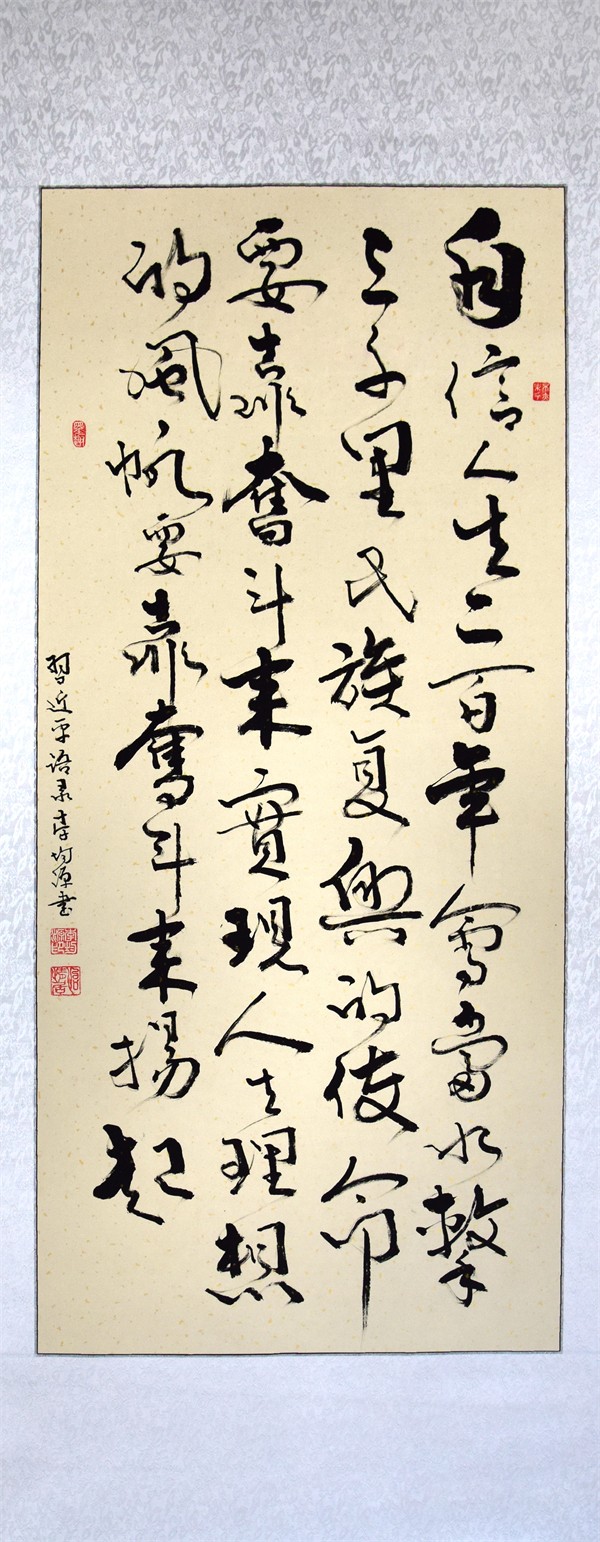 自信人生二百年會當水擊
三千里民族复興的使命
要靠奮斗来實現人生理想
的風帆要靠奮斗来揚起
習近平語录李均源书